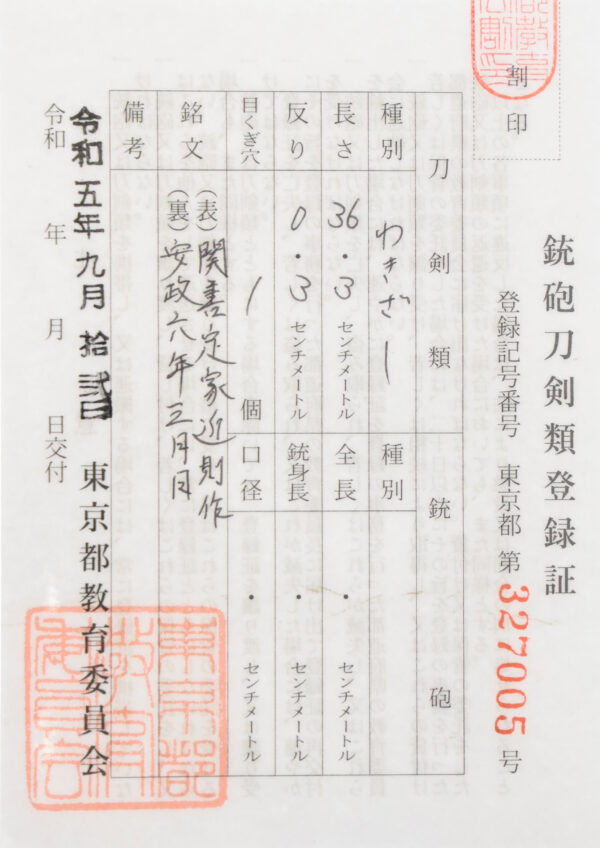 割印
銃砲刀剣類登録証
登録記号番号 東京都 第 327005 号
刀剣類 銃砲
種別 わきざし 種別
長さ 36.3 センチメートル 全長 ・ センチメートル
反り 0.3 センチメートル 銃身長 ・ センチメートル
目くぎ穴 1 個 口径 ・ センチメートル
銘文 (表)関善定家近則作
(裏)安政六年三月日
備考
令和五年九月拾弐日
令和 年 月 日交付
東京都教育委員会
東京都教育委員会